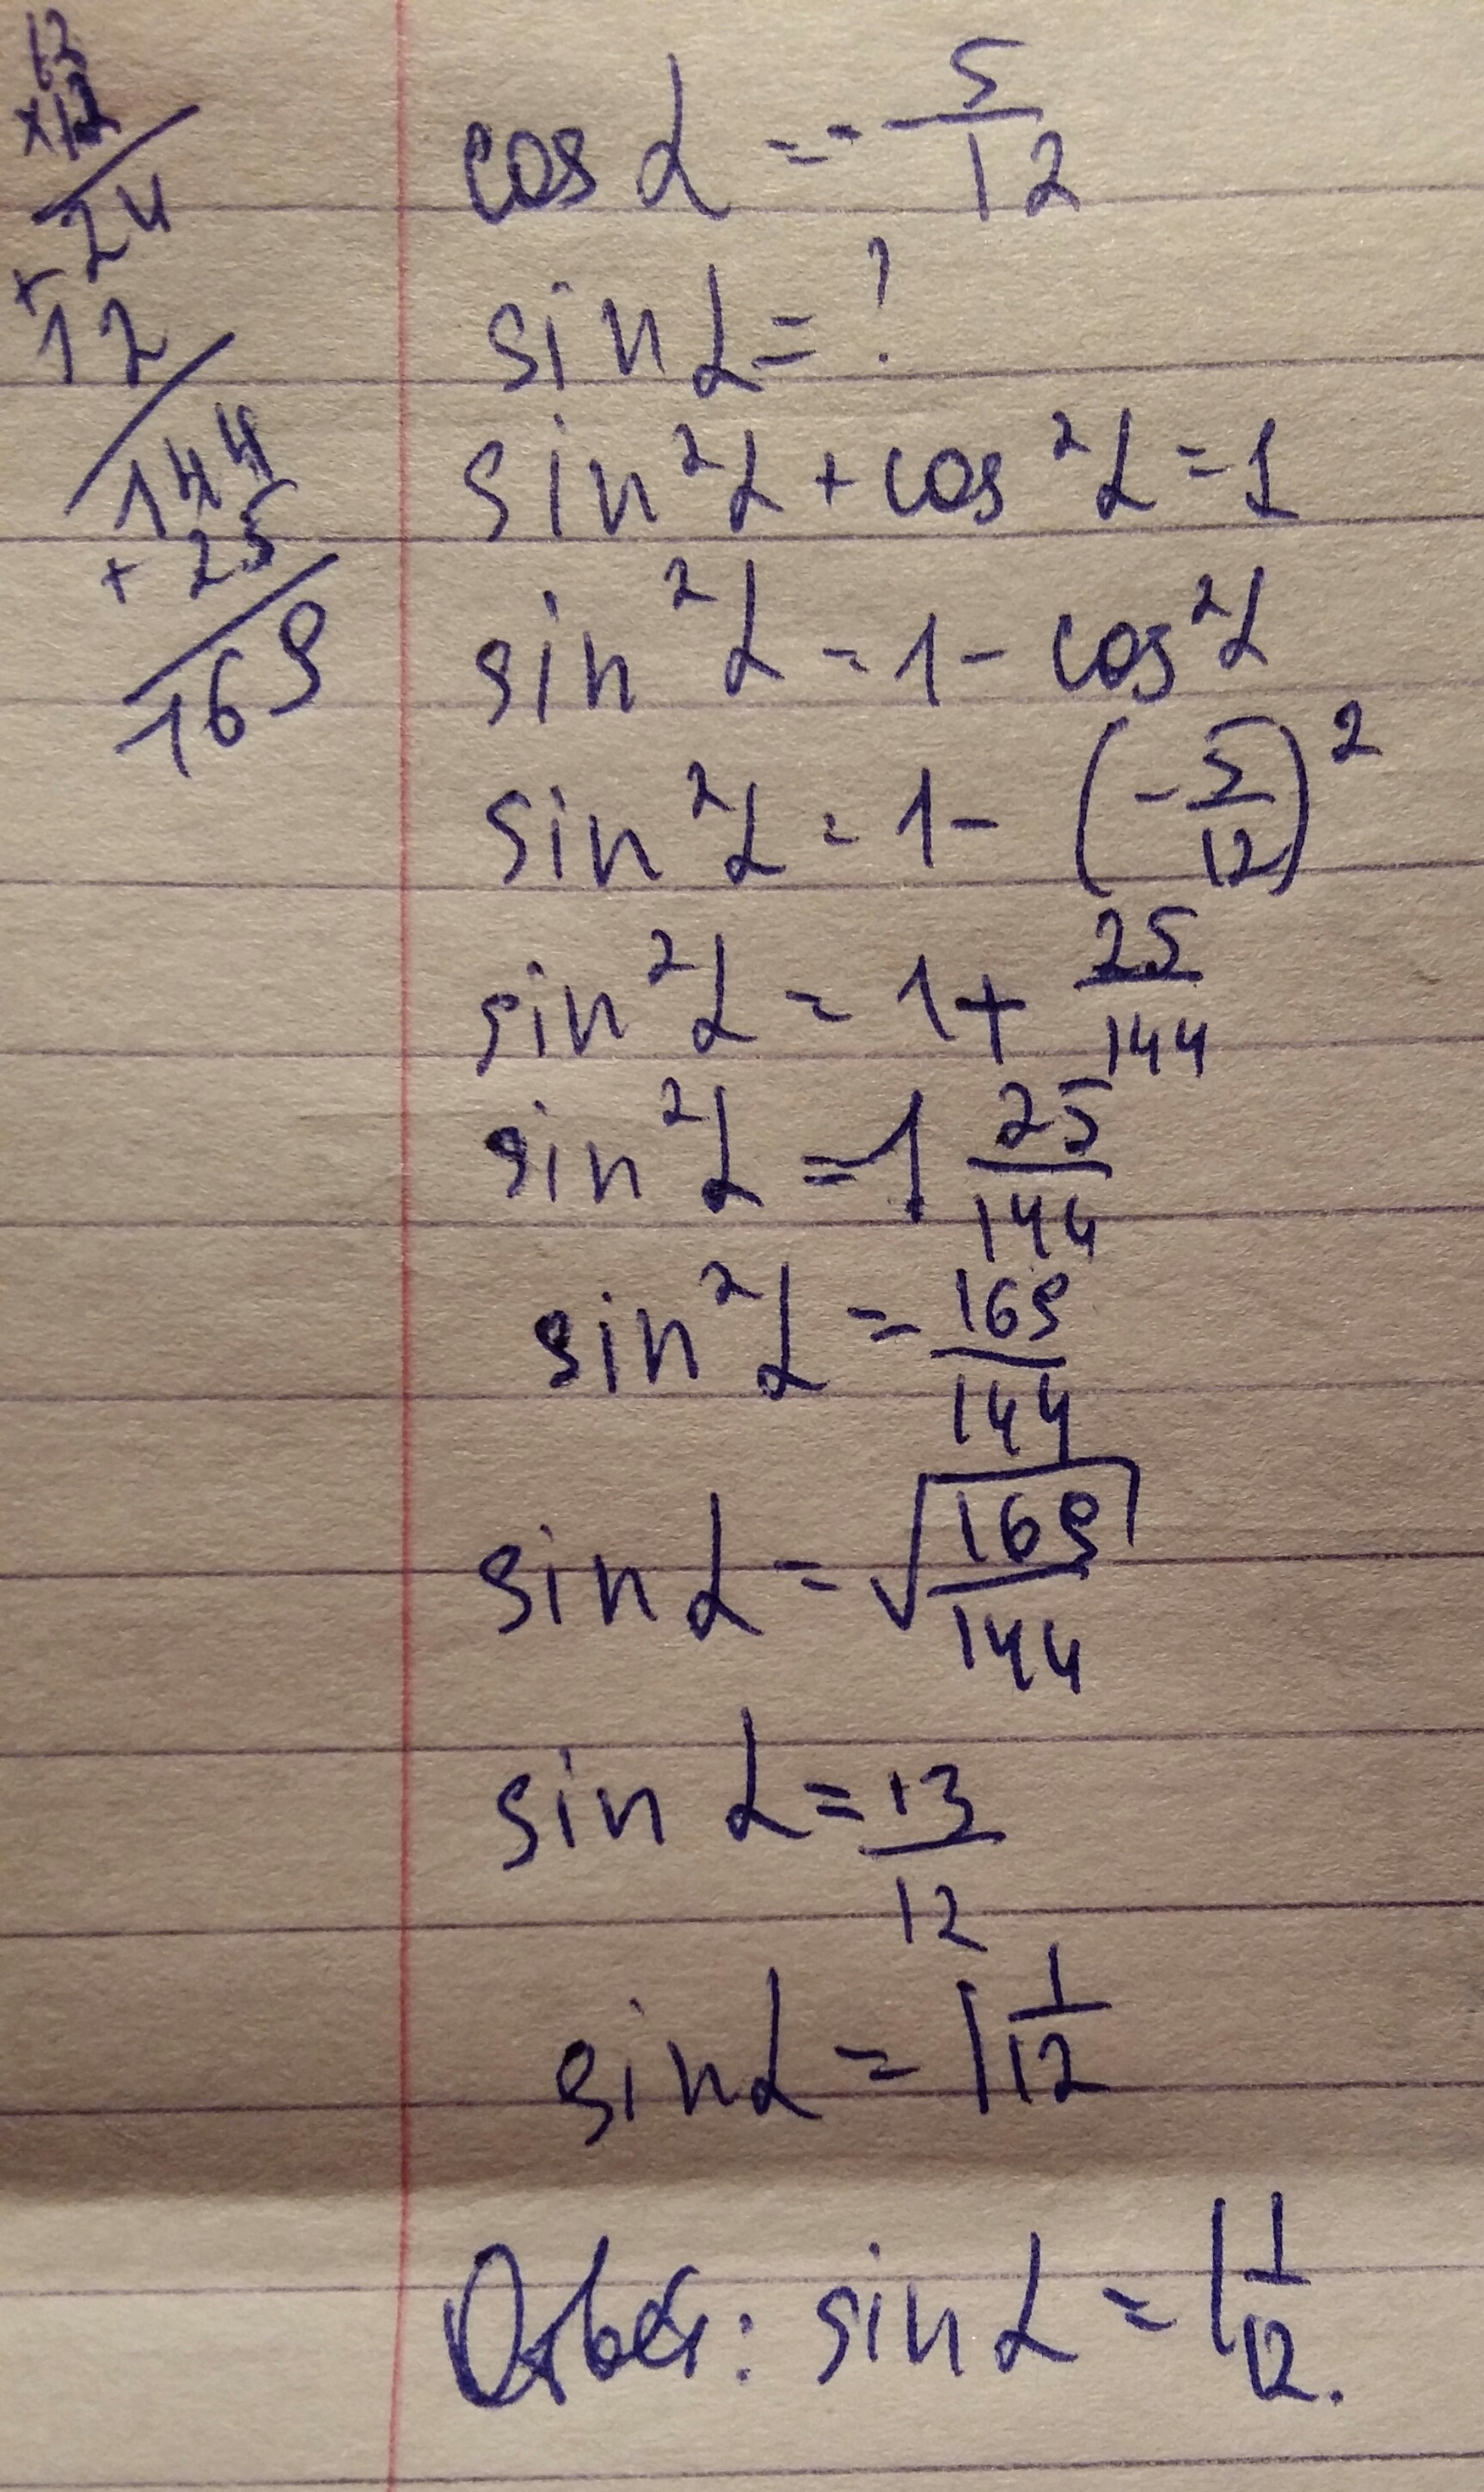 12
×12
24
+
12
144
+ 25
169
cos α = - 5/12
sin α = ?
sin²α + cos²α = 1
sin²α = 1 - cos²α
sin²α = 1 - (-5/12)²
sin²α = 1 + 25/144
sin²α = 1 25/144
sin²α = 169/144
sin α = √(169/144)
sin α = 13/12
sin α = 1 1/12
Ответ: sin α = 1 1/12.